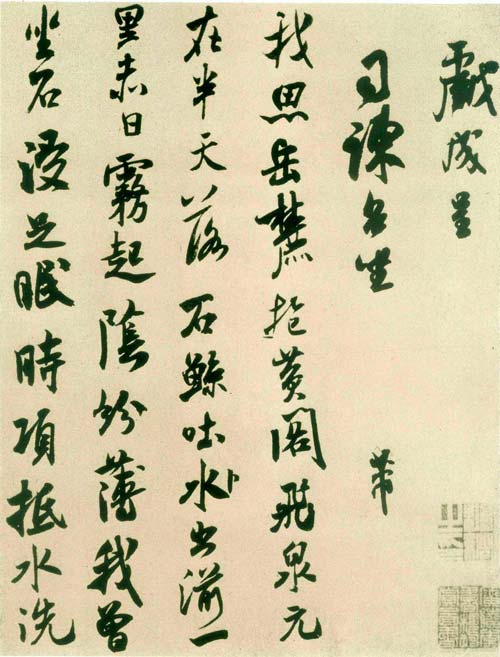 戲成呈
司諫台坐 芾
我思岳麓抱黃閣飛泉元
在半天落石鯨吐水出湔一
里赤日霧起陰紛薄我曾
坐石浸足眠時項抵水洗